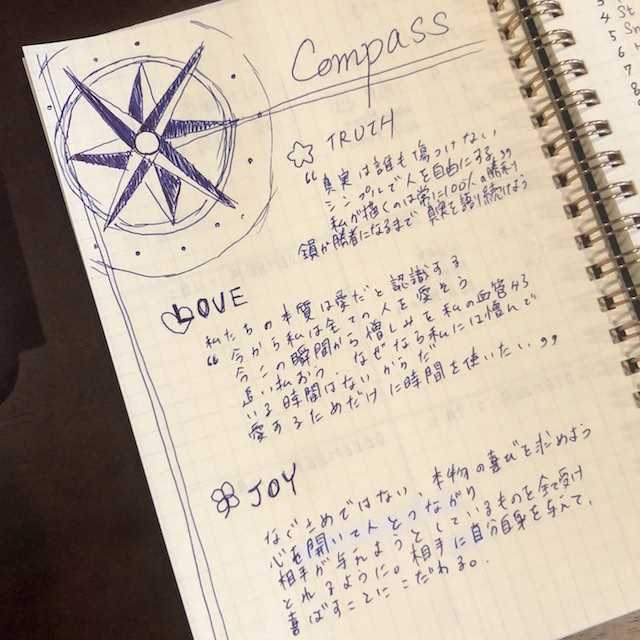 Compass
TRUTH
"真実は誰も傷つけない
シンプルで人を自由にする"
私が描くのは常に100人の勝利
勝者になるまで 真実を語り続けよう
LOVE
私たちの本質は愛だと認識する
"今から私は全ての人を愛そう
今この瞬間から憎しみを私の血管から
追い払おう。なぜなら私には憎んで
いる時間はないからだ
愛するためだけに時間を使いたい"
JOY
なぐさめではない、本物の喜びを求めよう
心を開いて人とつながり
相手が与えようとしているものを全て受け
とれるように。相手に自分自身を与えて、
喜ばすことにこだわる。
4 St
5 Sn
6
7
8